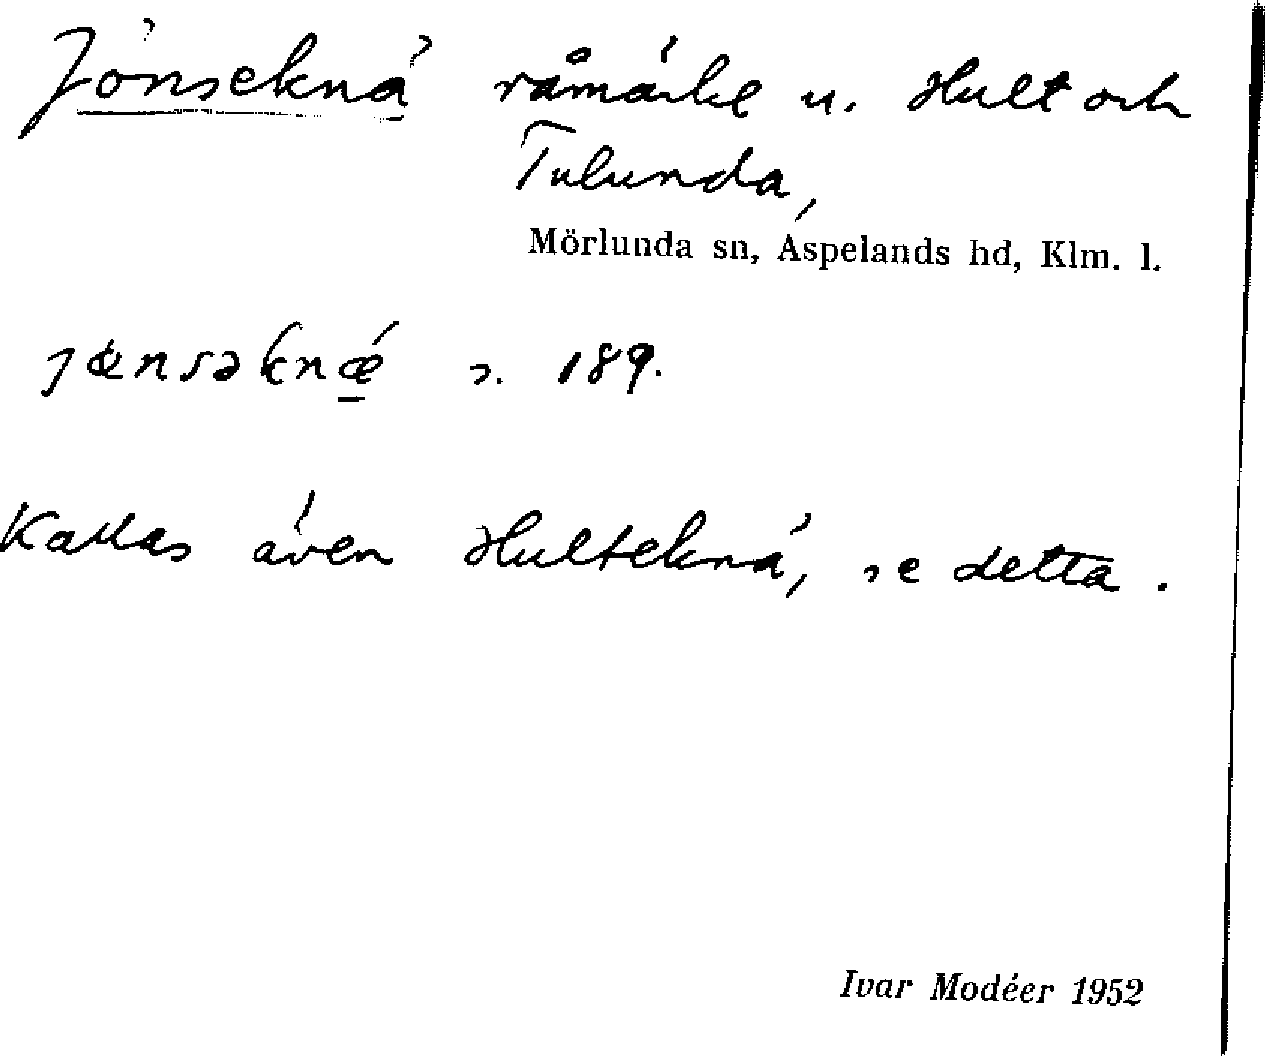 Jönseknä råmärke u. Hult och
Tulunda,
Mörlunda sn, Aspelands hd, Klm. l.
jœnsəknǽ s. 189.
Kallas även Hulteknä, se detta.
Ivar Modéer 1952